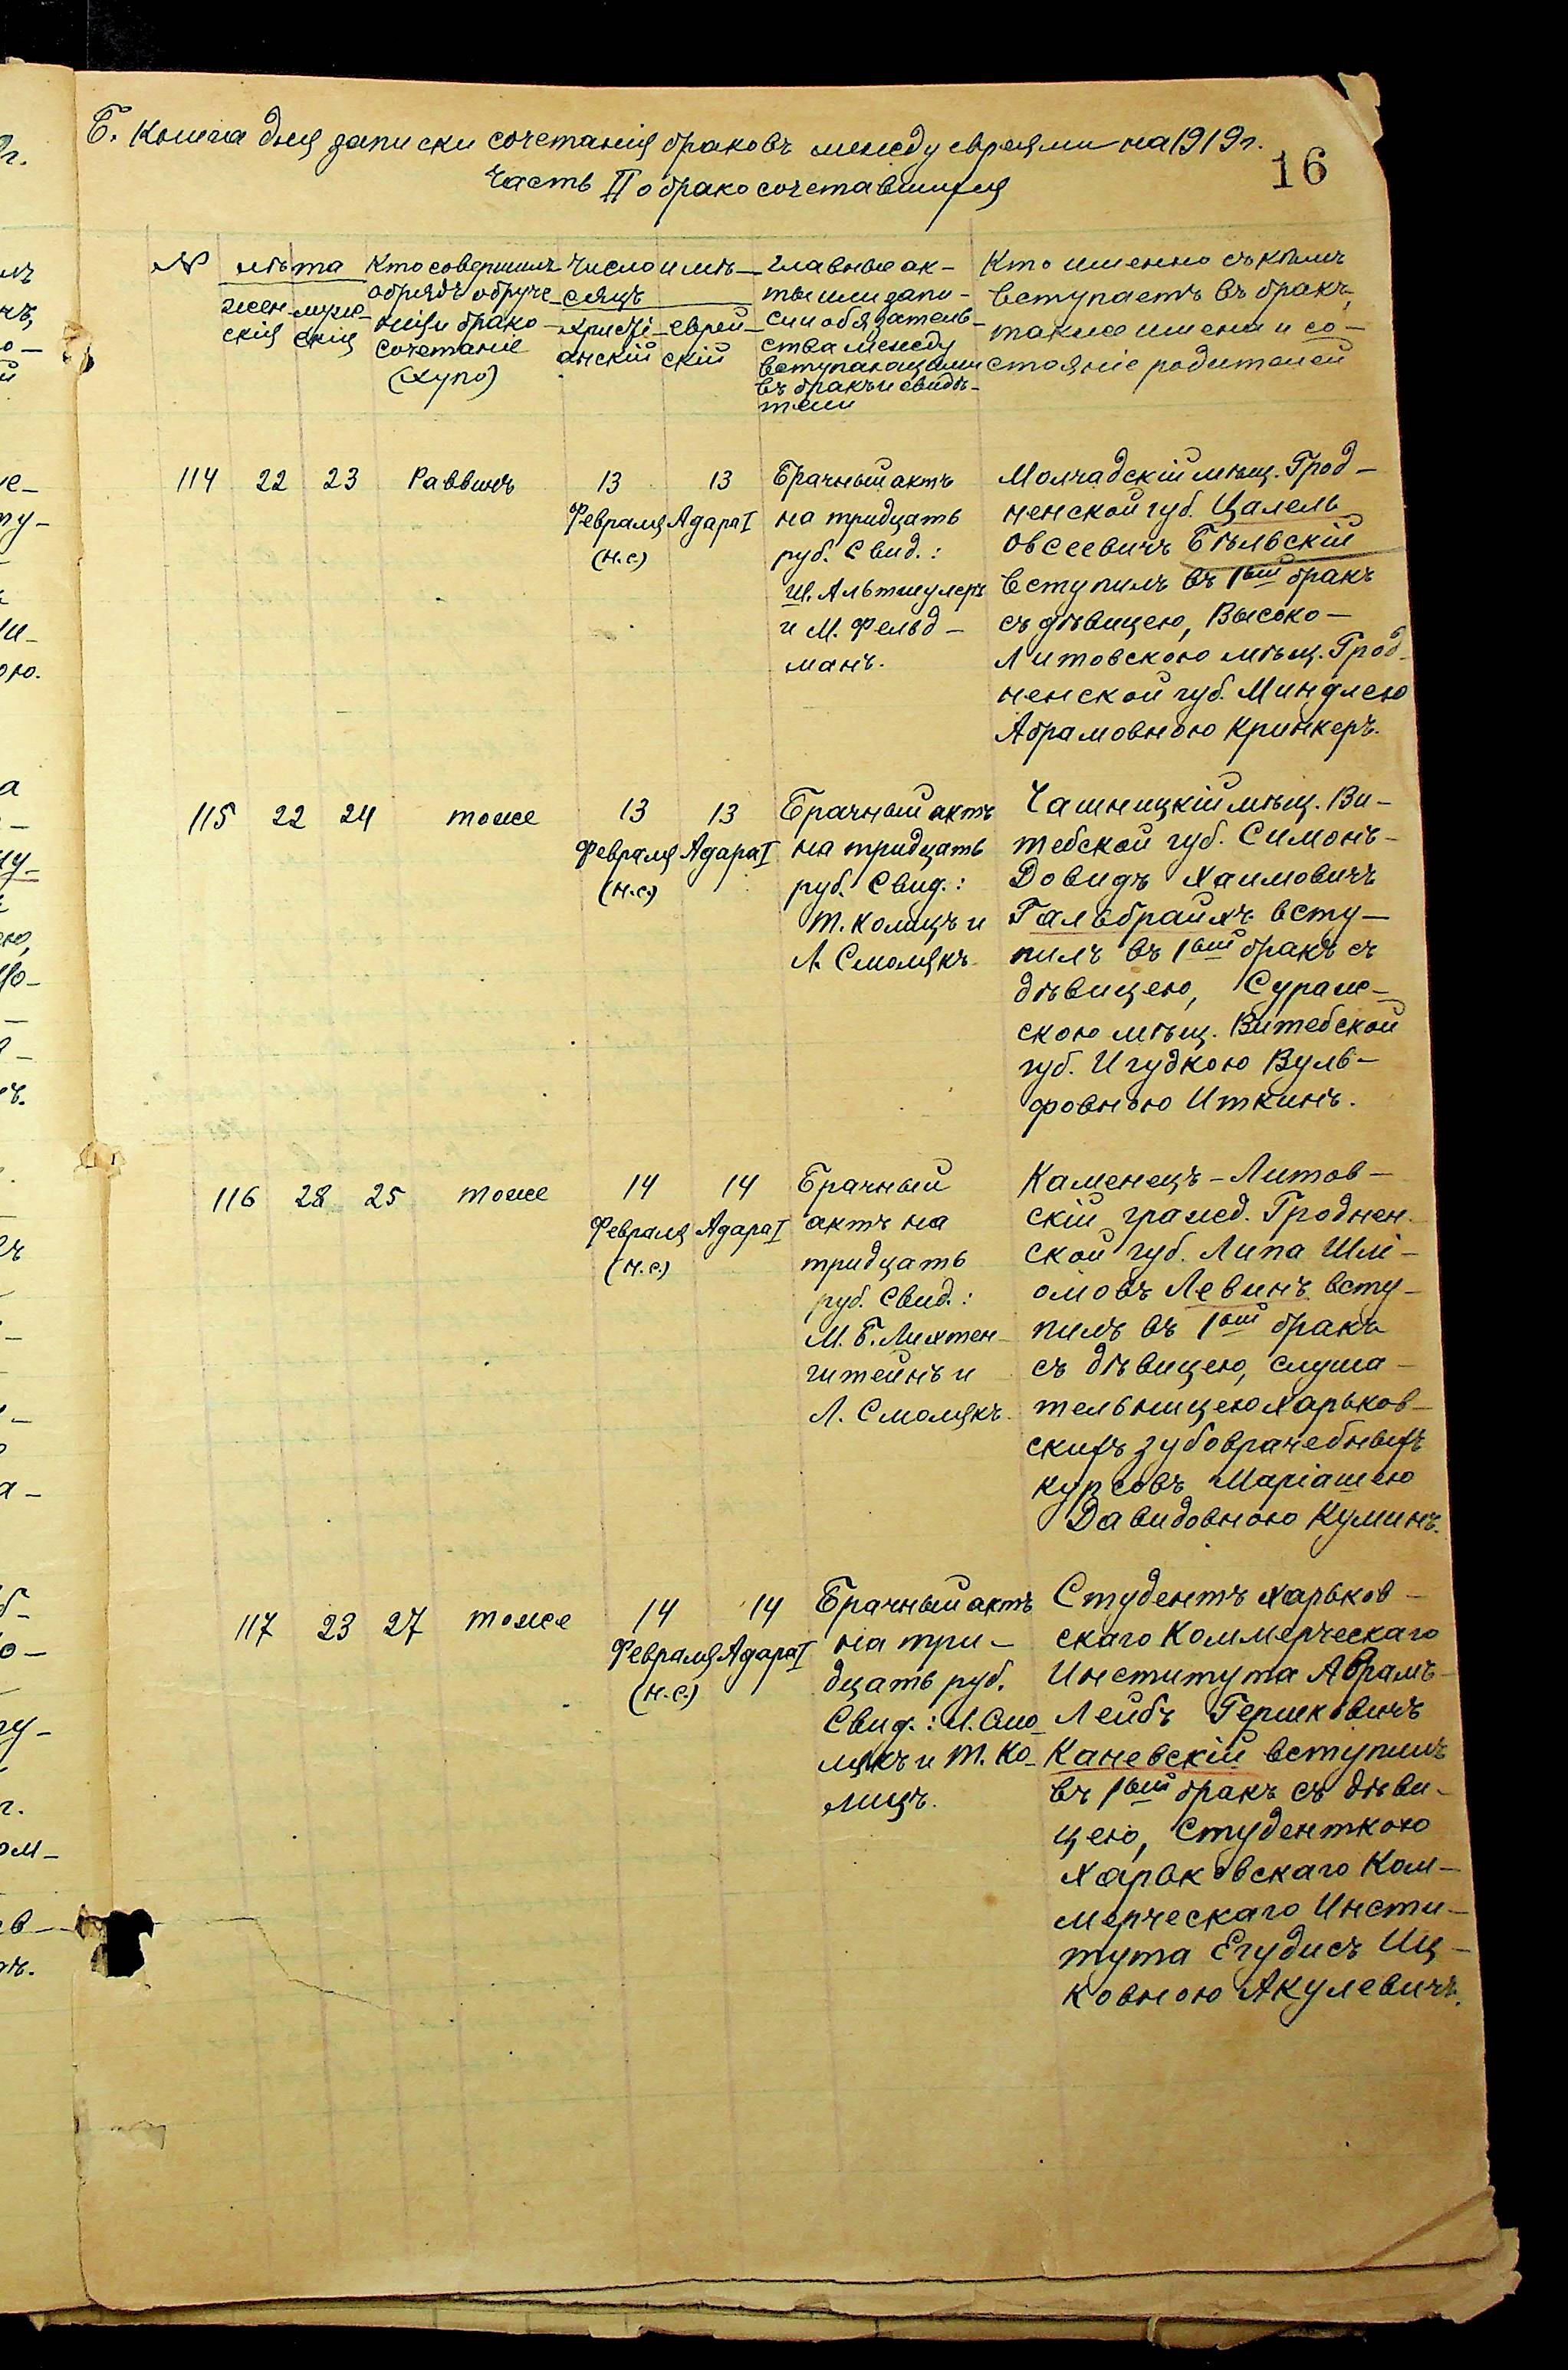 Б. Книга для записки сочетанія браковъ между евреями на 1919 г.
16
Часть II о бракосочетавшихся
№ лѣта
женскія мужескія
Кто совершилъ
обрядъ обруче-
нія и брако-
сочетаніе
(хупо)
Число и мѣ-
сяцъ
христі-
анскій
еврей-
скій
Главные ак-
ты или запи-
си и обязатель-
ства между
вступающими
въ бракъ и свидѣ-
тели
Кто именно съ кѣмъ
вступаетъ въ бракъ,
также имена и со-
стояніе родителей
114 22 23 Раввинъ
13
Февраля
(н.с.)
13
Адара I
Брачный актъ
на тридцать
руб. Свид.:
Ш. Альтшулеръ
и М. Фельд-
манъ.
Молчадскій мѣщ. Грод-
ненской губ. Цалель
Овсеевичъ Бѣльскій
вступилъ въ 1ый бракъ
съ дѣвицею, Высоко-
Литовскою мѣщ. Грод-
ненской губ. Миндлею
Абрамовною Кринкеръ.
115 22 24 тоже
13
Февраля
(н.с.)
13
Адара I
Брачный актъ
на тридцать
руб. Свид.:
Т. Колицъ и
Л. Смолякъ
Чашницкій мѣщ. Ви-
тебской губ. Симонъ-
Довидъ Хаимовичъ
Гальбрайхъ всту-
пилъ въ 1ый бракъ съ
дѣвицею, Сураж-
скою мѣщ. Витебской
губ. Игудкою Вуль-
фовною Иткинъ.
116 28 25 тоже
14
Февраля
(н.с.)
14
Адара I
Брачный
актъ на
тридцать
руб. Свид.:
М. Б. Лихтен-
штейнъ и
Л. Смолякъ.
Каменецъ-Литов-
скій гражд. Гроднен-
ской губ. Липа Шлі-
омовъ Левинъ всту-
пилъ въ 1ый бракъ
съ дѣвицею, слуша-
тельницею Харьков-
скихъ зубоврачебныхъ
курсовъ Маріашею
Давидовною Куминъ.
117 23 27 тоже
14
Февраля
(н.с.)
14
Адара I
Брачный актъ
на три-
дцать руб.
Свид.: Л. Смо-
лякъ и Т. Ко-
лицъ.
Студентъ Харьков-
скаго Коммерческаго
Института Абрамъ-
Лейбъ Гершковичъ
Каневскій вступилъ
въ 1ый бракъ съ дѣви-
цею, Студенткою
Харьковскаго Ком-
мерческаго Инсти-
тута Егудисъ Иц-
ковною Акулевичъ.